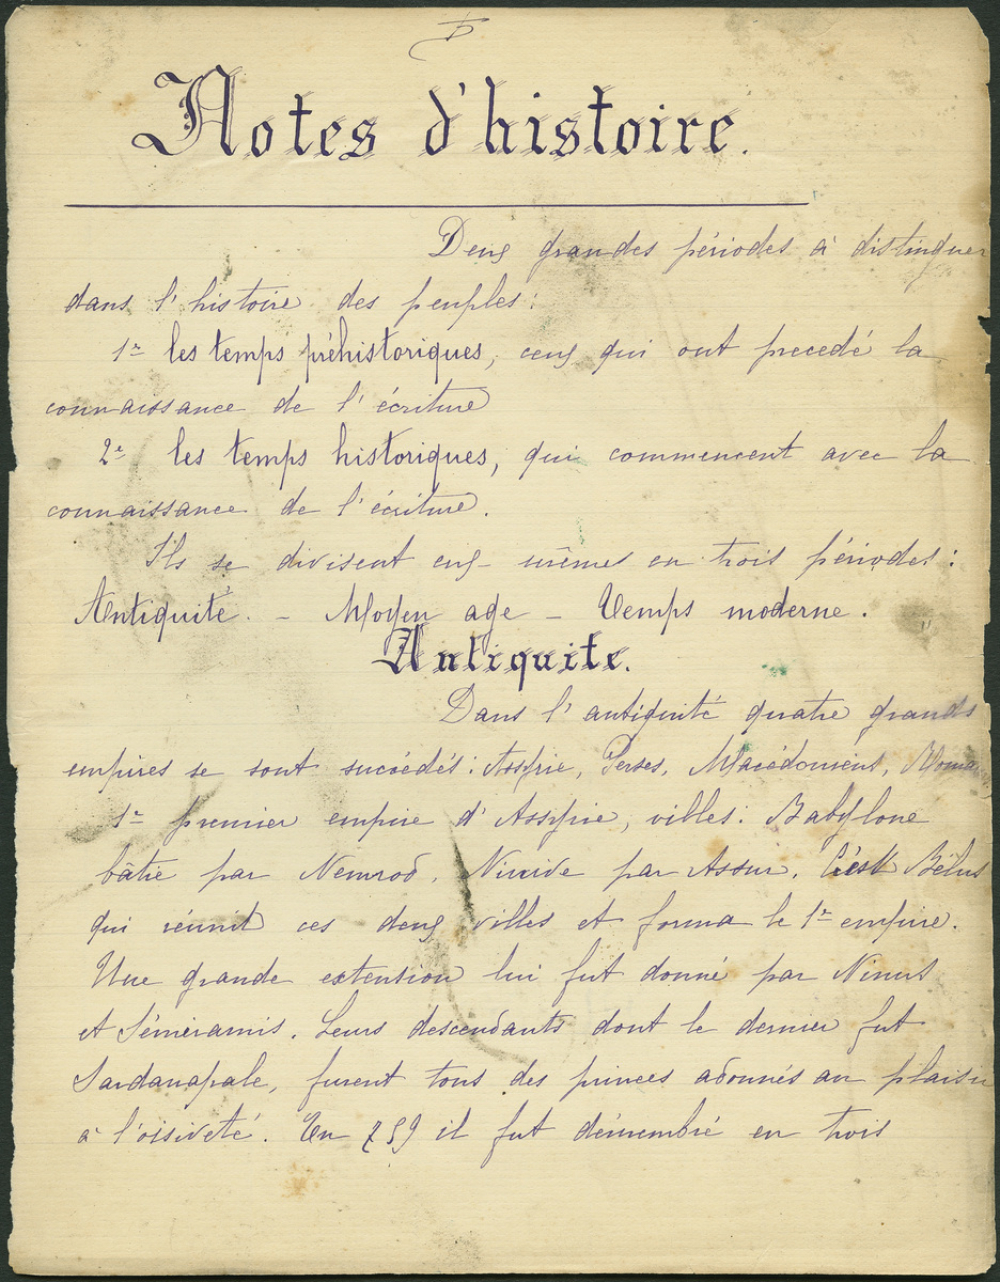 Notes d'histoire.
Deux grandes périodes à distinguer
dans l'histoire des peuples:
1er les temps préhistoriques, ceux qui ont precedé la
connaissance de l'écriture
2e les temps historiques, qui commencent avec la
connaissance de l'écriture.
Ils se divisent eux-mêmes en trois périodes:
Antiquité. – Moyen age – Temps moderne.
Antiquite.
Dans l'antiquité quatre grands
empires se sont succédés: Assyrie, Perses, Macédoniens,
1er premier empire d'Assyrie, villes: Babylone
bâtie par Nemrod. Ninive par Assur. C'est Bélus
qui réunit ces deux villes et forma le 1er empire.
Une grande extention lui fut donné par Ninus
et Séméramis. Leurs descendants dont le dernier fut
Sardanapale, furent tous des princes adonnés au plaisir
à l'oisiveté. En 759 il fut démembré en trois